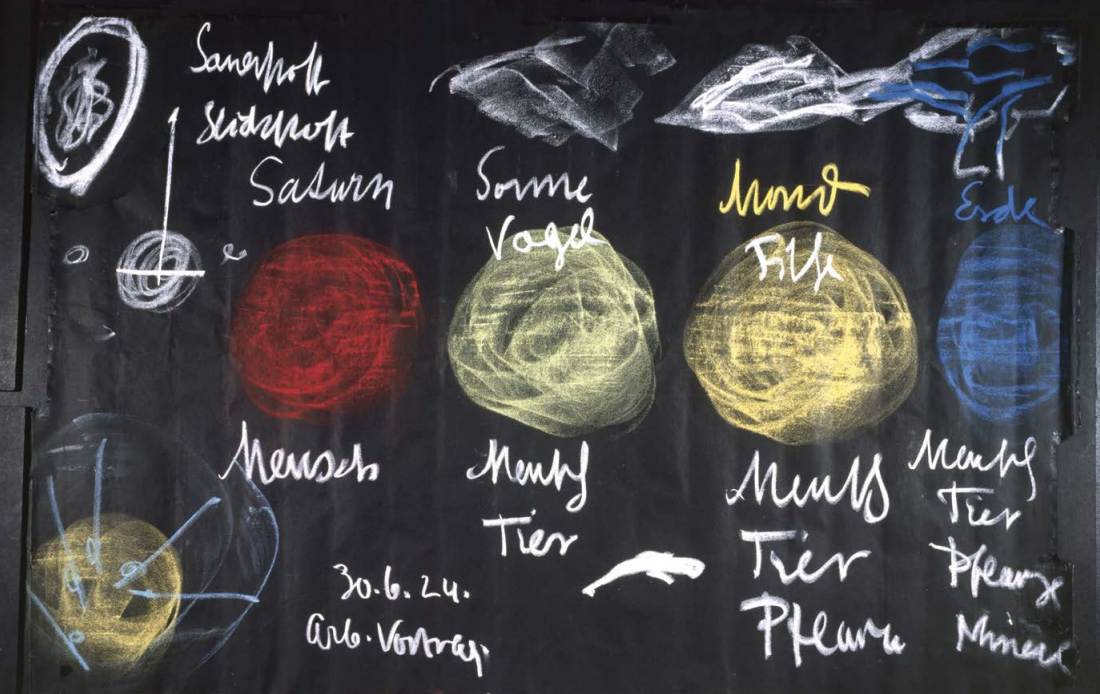 Sauerstoff
Stickstoff
Saturn
Sonne
Vogel
Mond
Fische
Erde
Mensch
Mensch
Tier
Mensch
Tier
Pflanze
Mensch
Tier
Pflanze
Mineral
30.6.24.
Arb. Vortrag